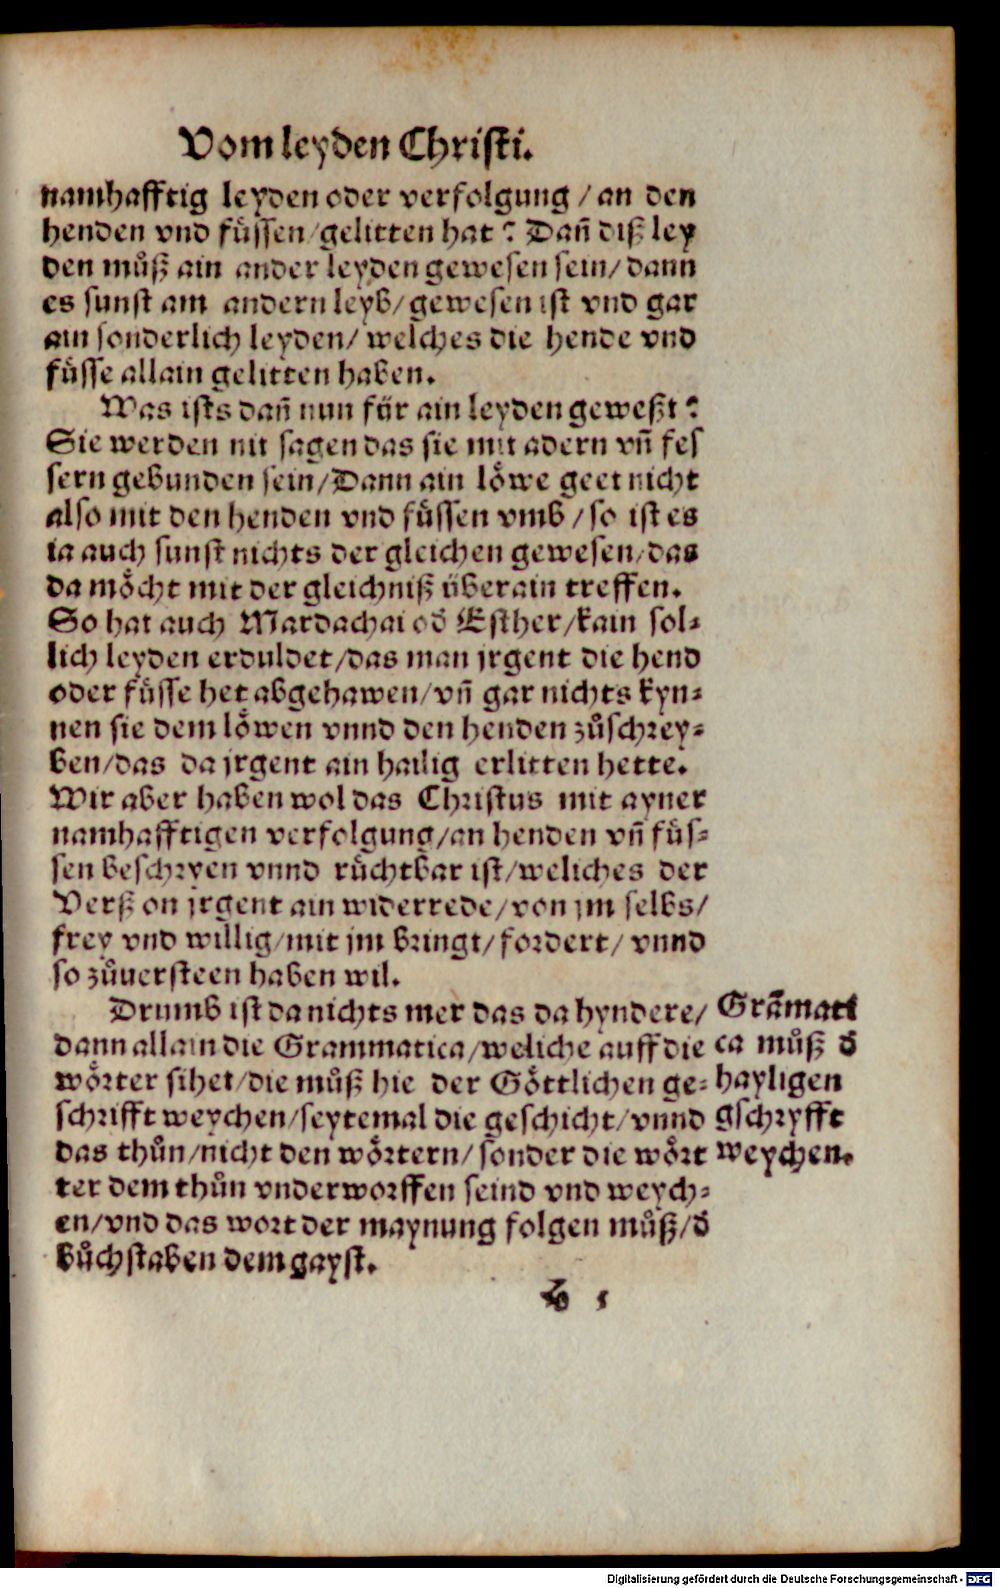 Vom leyden Christi.
namhafftig leyden oder verfolgung / an den
henden vnd fuͤssen/gelitten hat? Dañ diß ley
den muͦß ain ander leyden gewesen sein/ dann
es sunst am andern leyb/ gewesen ist vnd gar
ain sonderlich leyden/ welches die hende vnd
fuͤsse allain gelitten haben.
Was ists dañ nun fuͤr ain leyden geweßt?
Sie werden nit sagen das sie mit adern vñ fes
sern gebunden sein/Dann ain loͤwe geet nicht
also mit den henden vnd fuͤssen vmb / so ist es
ia auch sunst nichts der gleichen gewesen/das
da moͤcht mit der gleichniß uͤberain treffen.
So hat auch Mardachai od̃ Esther/kain sol-
lich leyden erduldet/das man jrgent die hend
oder fuͤsse het abgehawen/vñ gar nichts kyn-
nen sie dem loͤwen vnnd den henden zuͦschrey-
ben/das da jrgent ain hailig erlitten hette.
Wir aber haben wol das Christus mit ayner
namhafftigen verfolgung/an henden vñ fuͤs-
sen beschryen vnnd ruͤchtbar ist/weliches der
Verß on jrgent ain widerrede/von jm selbs/
frey vnd willig/mit jm bringt/fordert/ vnnd
so zuͦuersteen haben wil.
Drumb ist da nichts mer das da hyndere/
dann allain die Grammatica/weliche auff die
woͤrter sihet/die muͦß hie der Goͤttlichen ge-
schrifft weychen/seytemal die geschicht/vnnd
das thuͦn/nicht den woͤrtern/ sonder die woͤrt
ter dem thuͦn vnderworffen seind vnd weych-
en/vnd das wort der maynung folgen muͦß/d̃
buͦchstaben dem gayst.
Grãmati
ca muͦß d̃
hayligen
gschryfft
weychen.
b 5
Digitalisierung gefördert durch die Deutsche Forschungsgemeinschaft - DFG